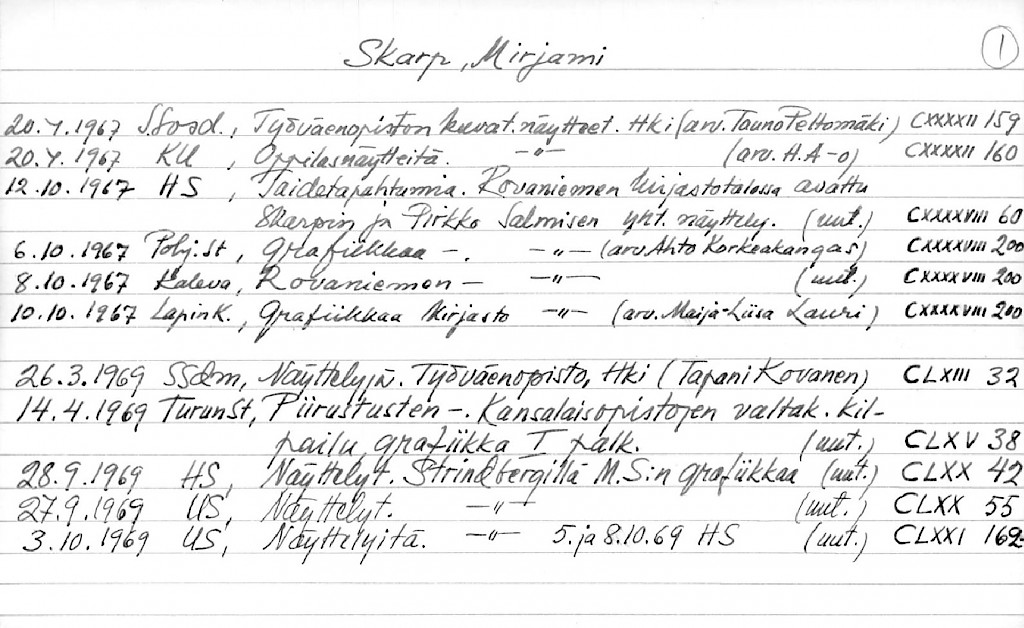 Skarp, Mirjami 1
20.4.1967 S.Sosd., Työväenopiston kuvat. näytteet. Hki (arv. Tauno Peltomäki) CXXXXII 159
20.4.1967 KU, Oppilasnäytteitä. -"- (arv. H.A-o) CXXXXII 160
12.10.1967 HS, Taidetapahtumia. Rovaniemen kirjastotalossa avattu
Skarpin ja Pirkko Salmisen yht. näyttely. (uut.) CXXXXVIII 60
6.10.1967 Pohj.st, Grafiikkaa -. -"- (arv. Ahto Korkeakangas) CXXXXVIII 200
8.10.1967 Kaleva, Rovaniemen - -"- (uut.) CXXXXVIII 200
10.10.1967 Lapin K., Grafiikkaa kirjasto -"- (arv. Maija-Liisa Lauri) CXXXXVIII 200
26.3.1969 SSdm, Näyttelyjä. Työväenopisto, Hki (Tapani Kovanen) CLXIII 32
14.4.1969 TurunSt, Piirustusten -. Kansalaisopistojen valtak. kil-
pailu, grafiikka I palk. (uut.) CLXV 38
28.9.1969 HS, Näyttelyt. Strindbergillä M.S:n grafiikkaa (uut.) CLXX 42
27.9.1969 US, Näyttelyt. -"- (uut.) CLXX 55
3.10.1969 US, Näyttelyitä. -"- 5. ja 8.10.69 HS (uut.) CLXXI 162